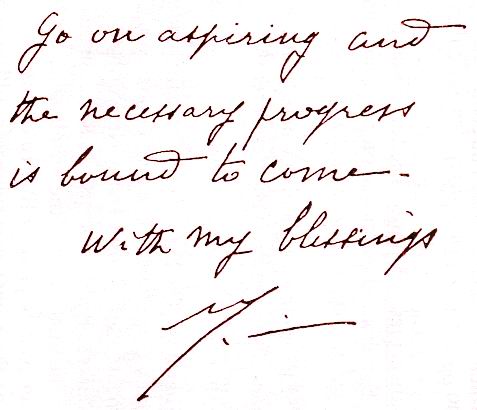 Go on aspiring and
the necessary progress
is bound to come –
With my blessings